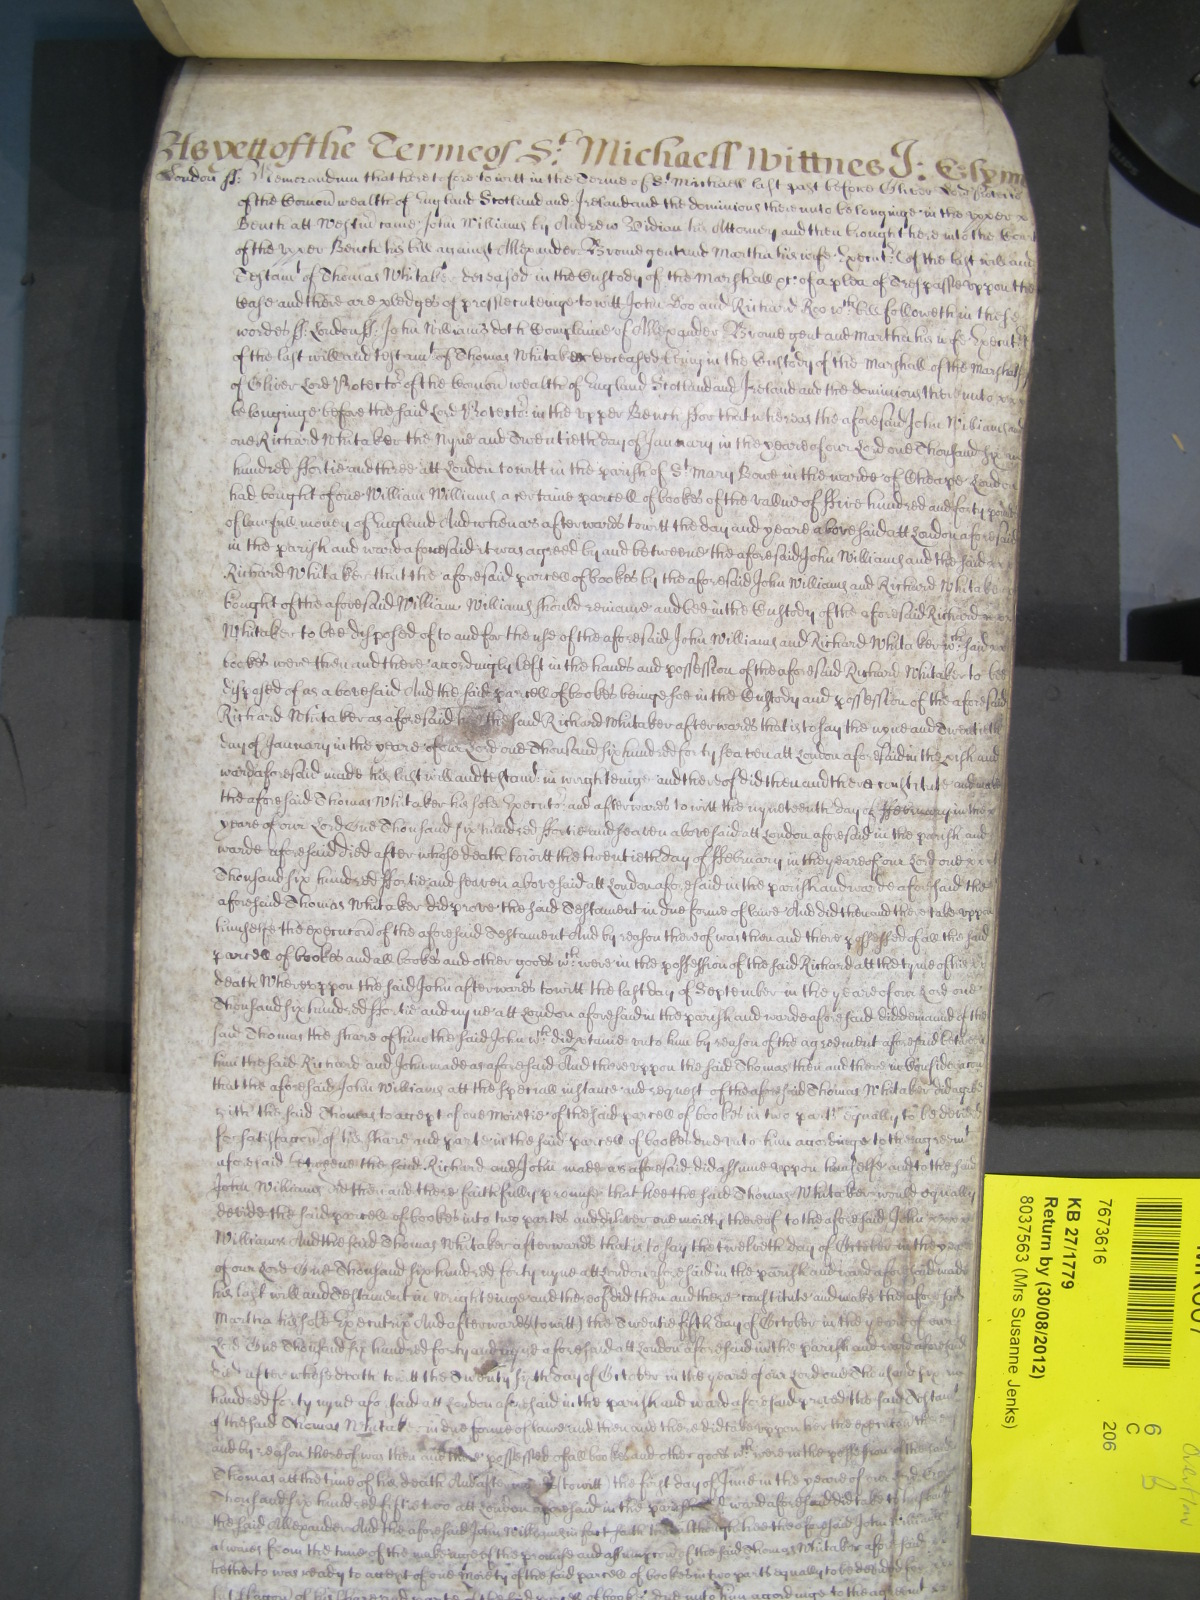 As yett of the Terme of St. Michaell Wittnes J: Glynn
London ss: Memorandum that heretofore to witt in the Terme of St. Michaell last past before Oliver Lord Protector
of the Comon wealth of England Scotland and Ireland and the dominions thereunto belonginge in the upper
Bench att Westm came John Williams by Andrew Vidian his Attorney and then brought here into the Court
of the upper Bench his bill against Allexander Brome gent and Martha his wife Execut of the last will and
Testamt of Thomas Whitaker deceased in the Custody of the Marshall &c of a plea of Trespasse uppon the
Case and there are pledges of prossecutinge to witt John Doo and Richard Roo wch bill followeth in these
wordes ss: London ss: John Williams doth Complaine of Allexander Brome gent and Martha his wife Execut
of the last will and testamt of Thomas Whitaker deceased being in the Custody of the Marshall of the Marshall
of Oliver Lord Protector of the Comon wealth of England Scotland and Ireland and the dominions thereunto
belonginge before the said Lord Protector in the upper Bench ffor that whereas the aforesaid John Williams and
one Richard Whitaker the Nyne and Twentieth day of January in the yeare of our Lord one Thousand six
hundred ffortie and three att London to witt in the parish of St Mary Bowe in the warde of Cheape London
had bought of one William Williams a certaine parcell of bookes of the value of ffive hundred and forty pounds
of lawfull money of England And whereas afterwards to witt the day and yeare abovesaid att London aforesaid
in the parish and ward aforesaid it was agreed by and betweene the aforesaid John Williams and the said
Richard Whitaker that the aforesaid parcell of bookes by the aforesaid John Williams and Richard Whitaker
bought of the aforesaid William Williams should remaine and bee in the Custody of the aforesaid Richard
Whitaker to bee disposed of to and for the use of the aforesaid John Williams and Richard Whitaker wch said
bookes were then and there accordingly left in the hands and possession of the aforesaid Richard Whitaker to bee
disposed of as abovesaid And the said parcell of bookes beinge soe in the Custody and possession of the aforesaid
Richard Whitaker as aforesaid hee the said Richard Whitaker afterwards that is to say the nyne and Twentieth
day of January in the yeare of our Lord one Thousand six hundred forty seaven att London aforesaid in the Parish and
ward aforesaid made his last will and testamt in wrightinge and thereof did then and there constitute and make
the aforesaid Thomas Whitaker his sole Executor and afterwards to witt the nyneteenth day of ffebruary in the
yeare of our Lord One Thousand six hundred ffortie and seaven abovesaid att London aforesaid in the parish and
warde aforesaid died after whose death to witt the twentieth day of ffebruary in the yeare of our Lord one
Thousand six hundred ffortie and seaven abovesaid att London aforesaid in the parish and warde aforesaid the
aforesaid Thomas Whitaker did prove the said Testament in due forme of lawe And did then and there take uppon
himselfe the execucon of the aforesaid Testament And by reason thereof was then and there possessed of all the said
parcell of bookes and all bookes and other goods wch were in the possession of the said Richard att the tyme of his
death Whereuppon the said John afterwards to witt the last day of September in the yeare of our Lord one
Thousand six hundred ffortie and nyne att London aforesaid in the parish and warde aforesaid did demand of the
said Thomas the share of him the said John wch did ptaine unto him by reason of the agreement aforesaid betweene
him the said Richard and John made as aforesaid And thereuppon the said Thomas then and there in Consideracon
that the aforesaid John Williams att the speciall instance and request of the aforesaid Thomas Whitaker did agree
with the said Thomas to accept of one Moietie of the said parcell of bookes in two parts equally to be devided
for satisfaccon of his share and parte in the said parcell of bookes due unto him accordinge to the agreemt
aforesaid betweene the said Richard and John made as aforesaid did assume uppon himselfe and to the said
John Williams did then and there faithfully promise that hee the said Thomas Whitaker would equally
devide the said parcell of bookes into two partes and deliver one moiety thereof to the aforesaid John
Williams And the said Thomas Whitaker afterwards that is to say the twelveth day of October in the yeare
of our Lord One Thousand six hundred forty nyne att London aforesaid in the parish and ward aforesaid made
his last will and Testament in wrightinge and thereof did then and there constitute and make the aforesaid
Martha his sole Executrix And afterwards (to witt) the Twentie fifth day of October in the yeare of our
Lord One Thousand six hundred forty and nyne aforesaid att London aforesaid in the parish and ward aforesaid
died after whose death to witt the Twenty sixth day of October in the yeare of our Lord one Thousand six
hundred forty nyne aforesaid att London aforesaid in the parish and ward aforesaid proved the said Testamt
of the said Thomas Whitaker in due forme of lawe and then and there did take uppon her the execucon thereof
and by reason thereof was then and there possessed of all bookes and other goods wch were in the possession of the said
Thomas att the time of his death And afterwards to witt the first day of June in the yeare of our Lord One
Thousand six hundred fiftie two att London aforesaid in the parish ward aforesaid did take to husband
the said Allexander And the aforesaid John Williams in fact saith that although hee the aforesaid John Williams
alwaies from the time of the makeinge of the promise and assumpcon of the said Thomas Whitaker aforesaid
hetherto was ready to accept of one moiety of the said parcell of bookes in two parts equally to be devided for
satisfaccon of his share and parte of the said parcell of bookes due unto him accordinge to the agreemt
7673616
KB 27/1779
Return by (30/08/2012)
8037563 (Mrs Susanne Jenks)
6
C
206